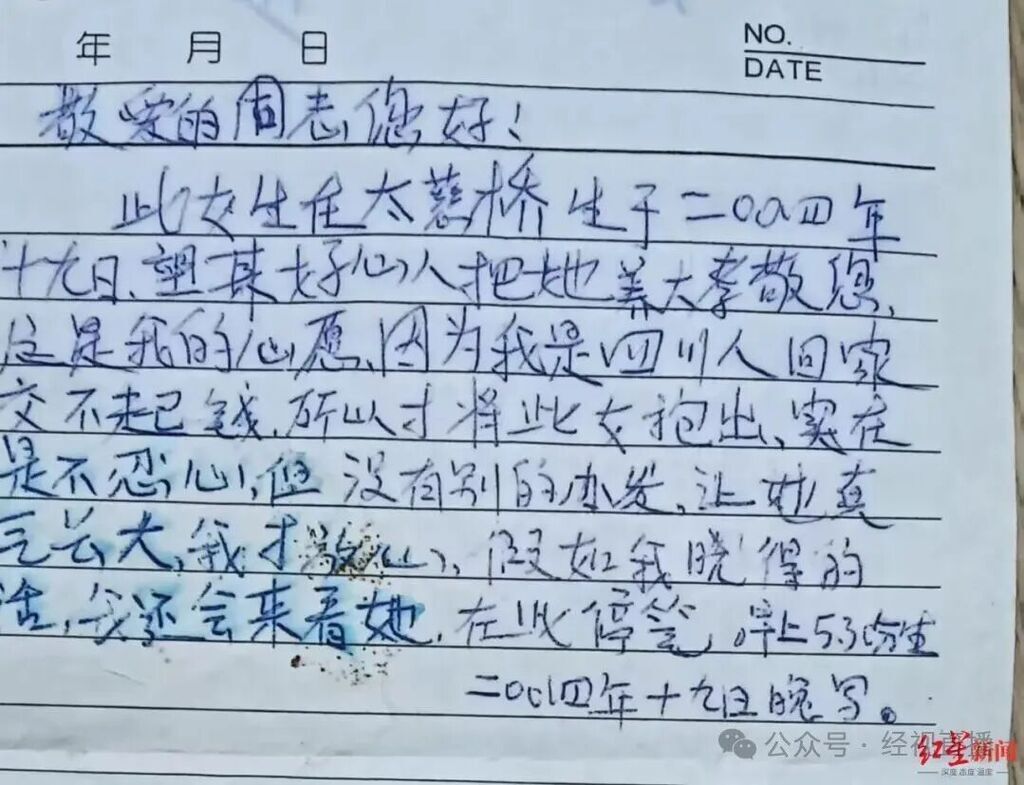 年 月 日
NO.
DATE
敬爱的同志,您好!
此女生在太慈桥生于二00四年
十九日,望某好心人把她养大孝敬您,
这是我的心愿,因为我是四川人回家
交不起钱,所以才将此女抱出,实在
是不忍心,但没有别的办发,让她真
气长大,我才放心,假如我晓得的
话,我还会来看她,在此停笔,早上5.30分生
二00四年十九日晚写。
公众号·经视直播
红星新闻
深度 态度 温度